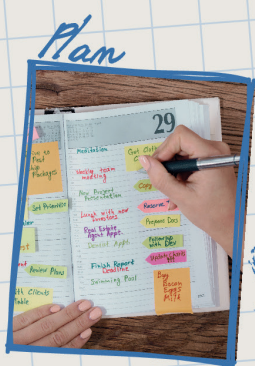 Plan
29
Meditation
Weekly team
meeting
New Project
Presentation
Lunch with new
investors
Real Estate
Agent Appt.
Dentist Appt.
Finish Report
Deadline
Swimming Pool
Get Clothes
Copy
Reserve
Prepare Docs
Followup
with Dev
Update Charts
Buy
Bacon
Eggs
Milk
Post
Packages
Set Priorities
Review Plans
Clients